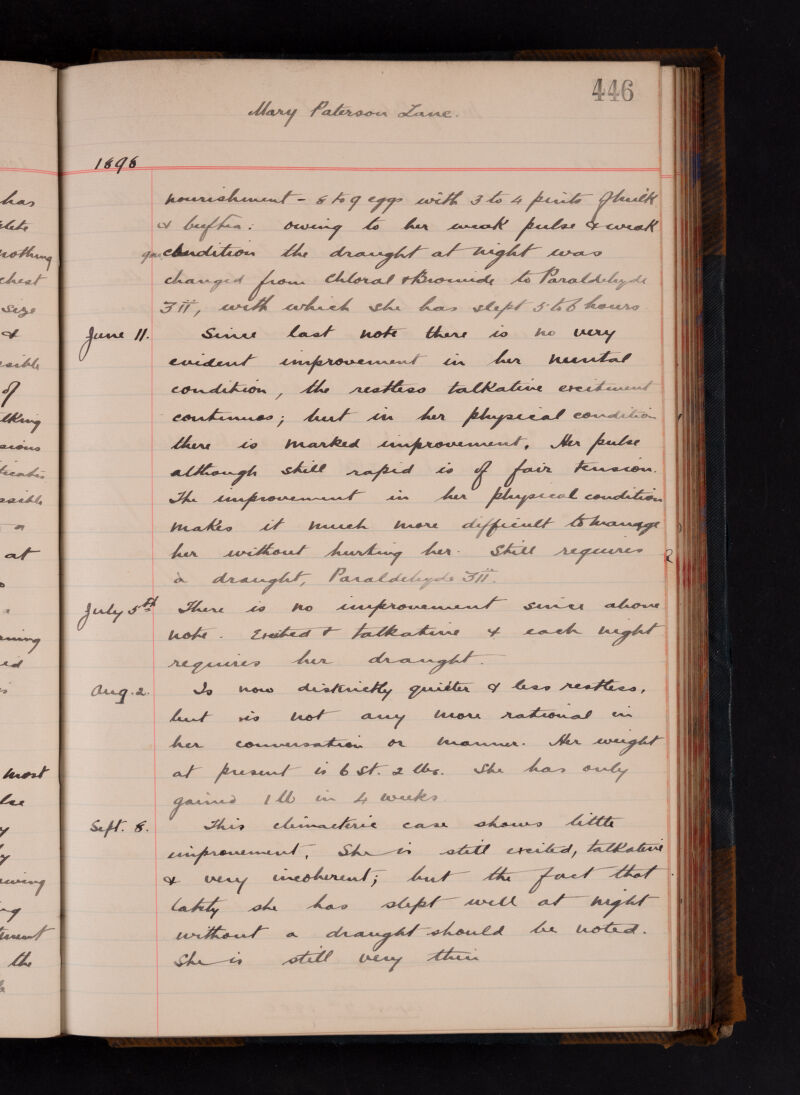 446
Mary Paterson Lane.
1898
nourishment - 8 to 9 eggs with 3 to 4 pints of milk
& beeftea. Owing to her weak pulse & weak
condition the draught at night was
changed from Chloral & Bromide to Paraldehyde
ʒii, with which she has slept 5 to 6 hours
June 11. Since last note there is no very
evident improvement in her mental
condition, the restless talkative excitement
continues; but in her physical condition
there is marked improvement. Her pulse
although still rapid is of fair tension.
The improvement in her physical condition
makes it much more difficult to manage
her without hurting her. Still requires
a draught, Paraldehyde ʒii.
July 5th There is no improvement since above
note. Excited & talkative & each night
requires her draught.
Aug. 2. Is now distinctly quieter & less restless,
but is not any more rational in
her conversation or manner. Her weight
at present is 6 St. 2 lbs. She has only
gained 1 lb in 4 weeks.
Sept. 8. This climacteric case shows little
improvement. She is still excited, talkative
& very incoherent; but the fact that
lately she has slept well at night
without a draught should be noted.
She is still very thin
has
nothing
chest
size
&
of
at
most
the